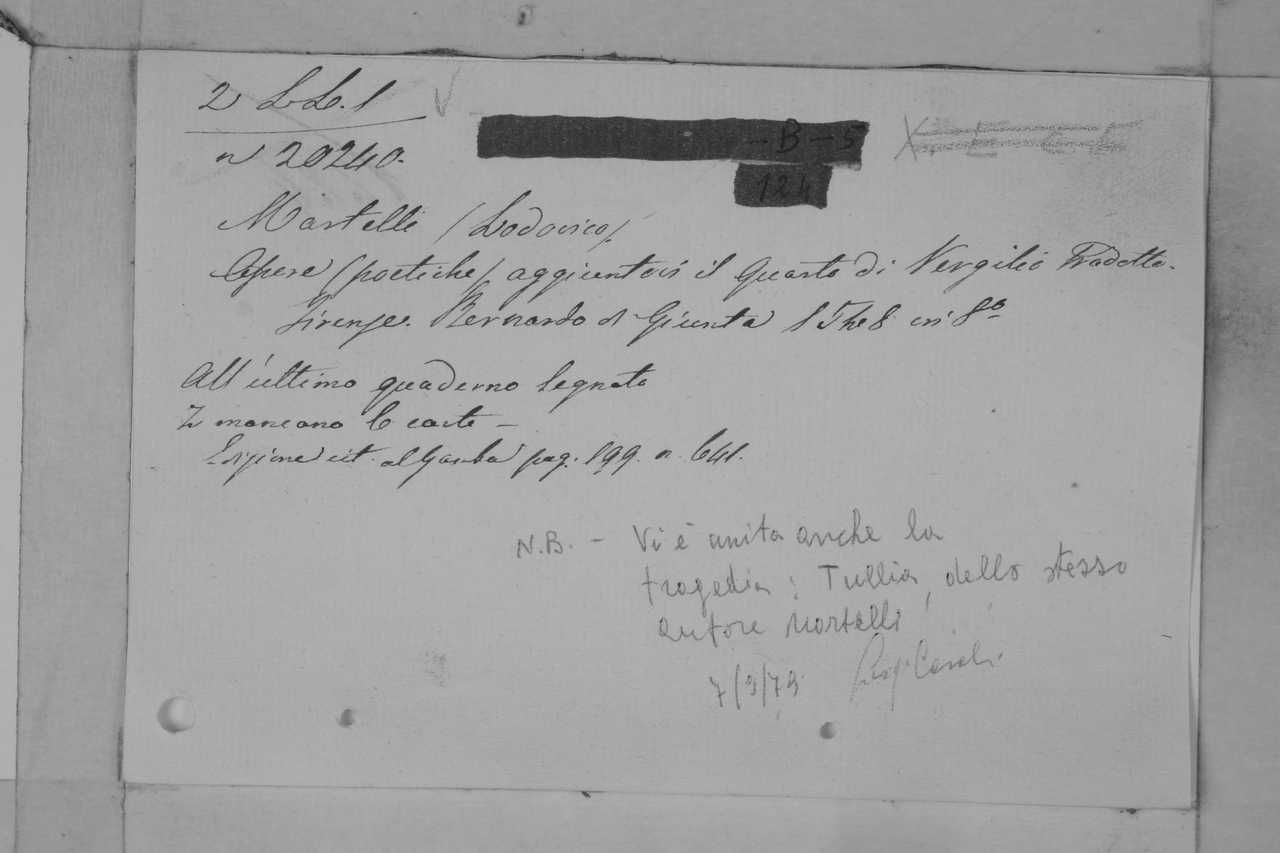 2 LL. 1
n 20240.
- B - 5
124
Martelli (Lodovico).
Opere (poetiche) aggiuntovi il Quarto di Vergilio Tradotto.
Firenze. Bernardo di Giunta 1548 in 8º
All'ultimo quaderno segnato
Z mancano le carte -
Edizione cit. al Gamba pag. 199. n. 641.
N.B. - Vi è unita anche la
tragedia: Tullia, dello stesso
autore Martelli
7/9/79